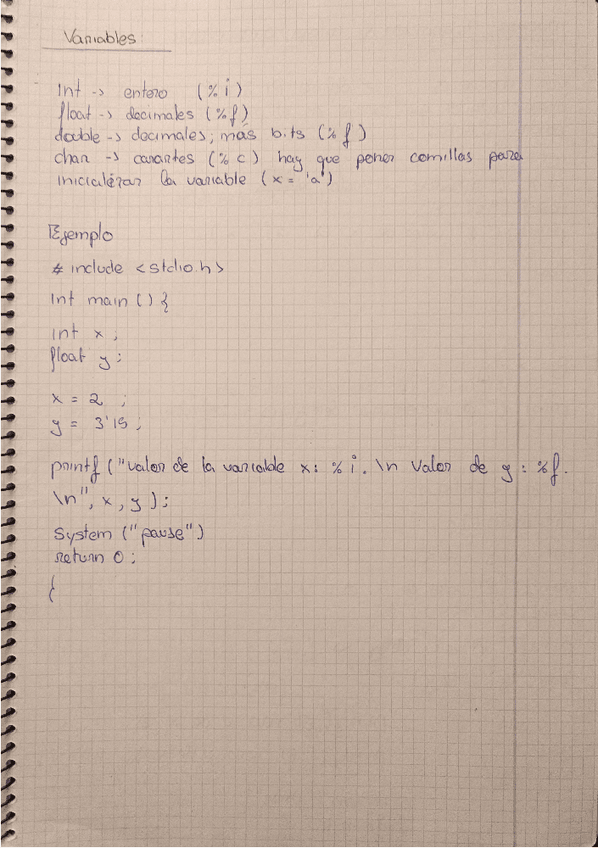 Variables
Int -> entero (%i)
float -> decimales (%f)
double -> decimales, más bits (%f)
char -> carartes (%c) hay que poner comillas para
inicializar la variable (x = 'a')
Ejemplo
# include <stdio.h>
Int main () {
int x ;
float y ;
x = 2 ;
y = 3'15 ;
printf ("valor de la variable x: %i. \n Valor de y : %f.
\n", x, y );
System ("pause")
return 0 ;
{